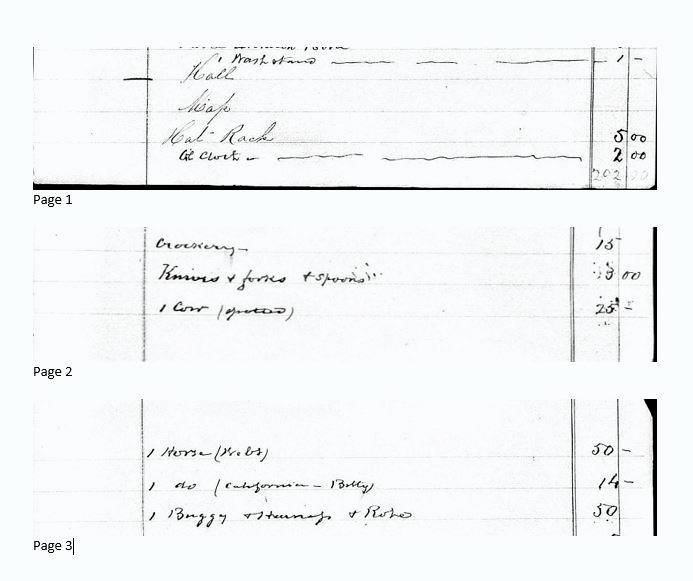 1 Wash stand 1 -
Hall
Map
Hat Rack 5 00
Oil Cloth - 2 00
202 00
Page 1
Crockery - 15
Knives & forks & spoons 3 00
1 Cow (spotted) 25 -
Page 2
1 Horse ( 50 -
1 do (California - Billy) 14 -
1 Buggy & Harness & Robe 50
Page 3